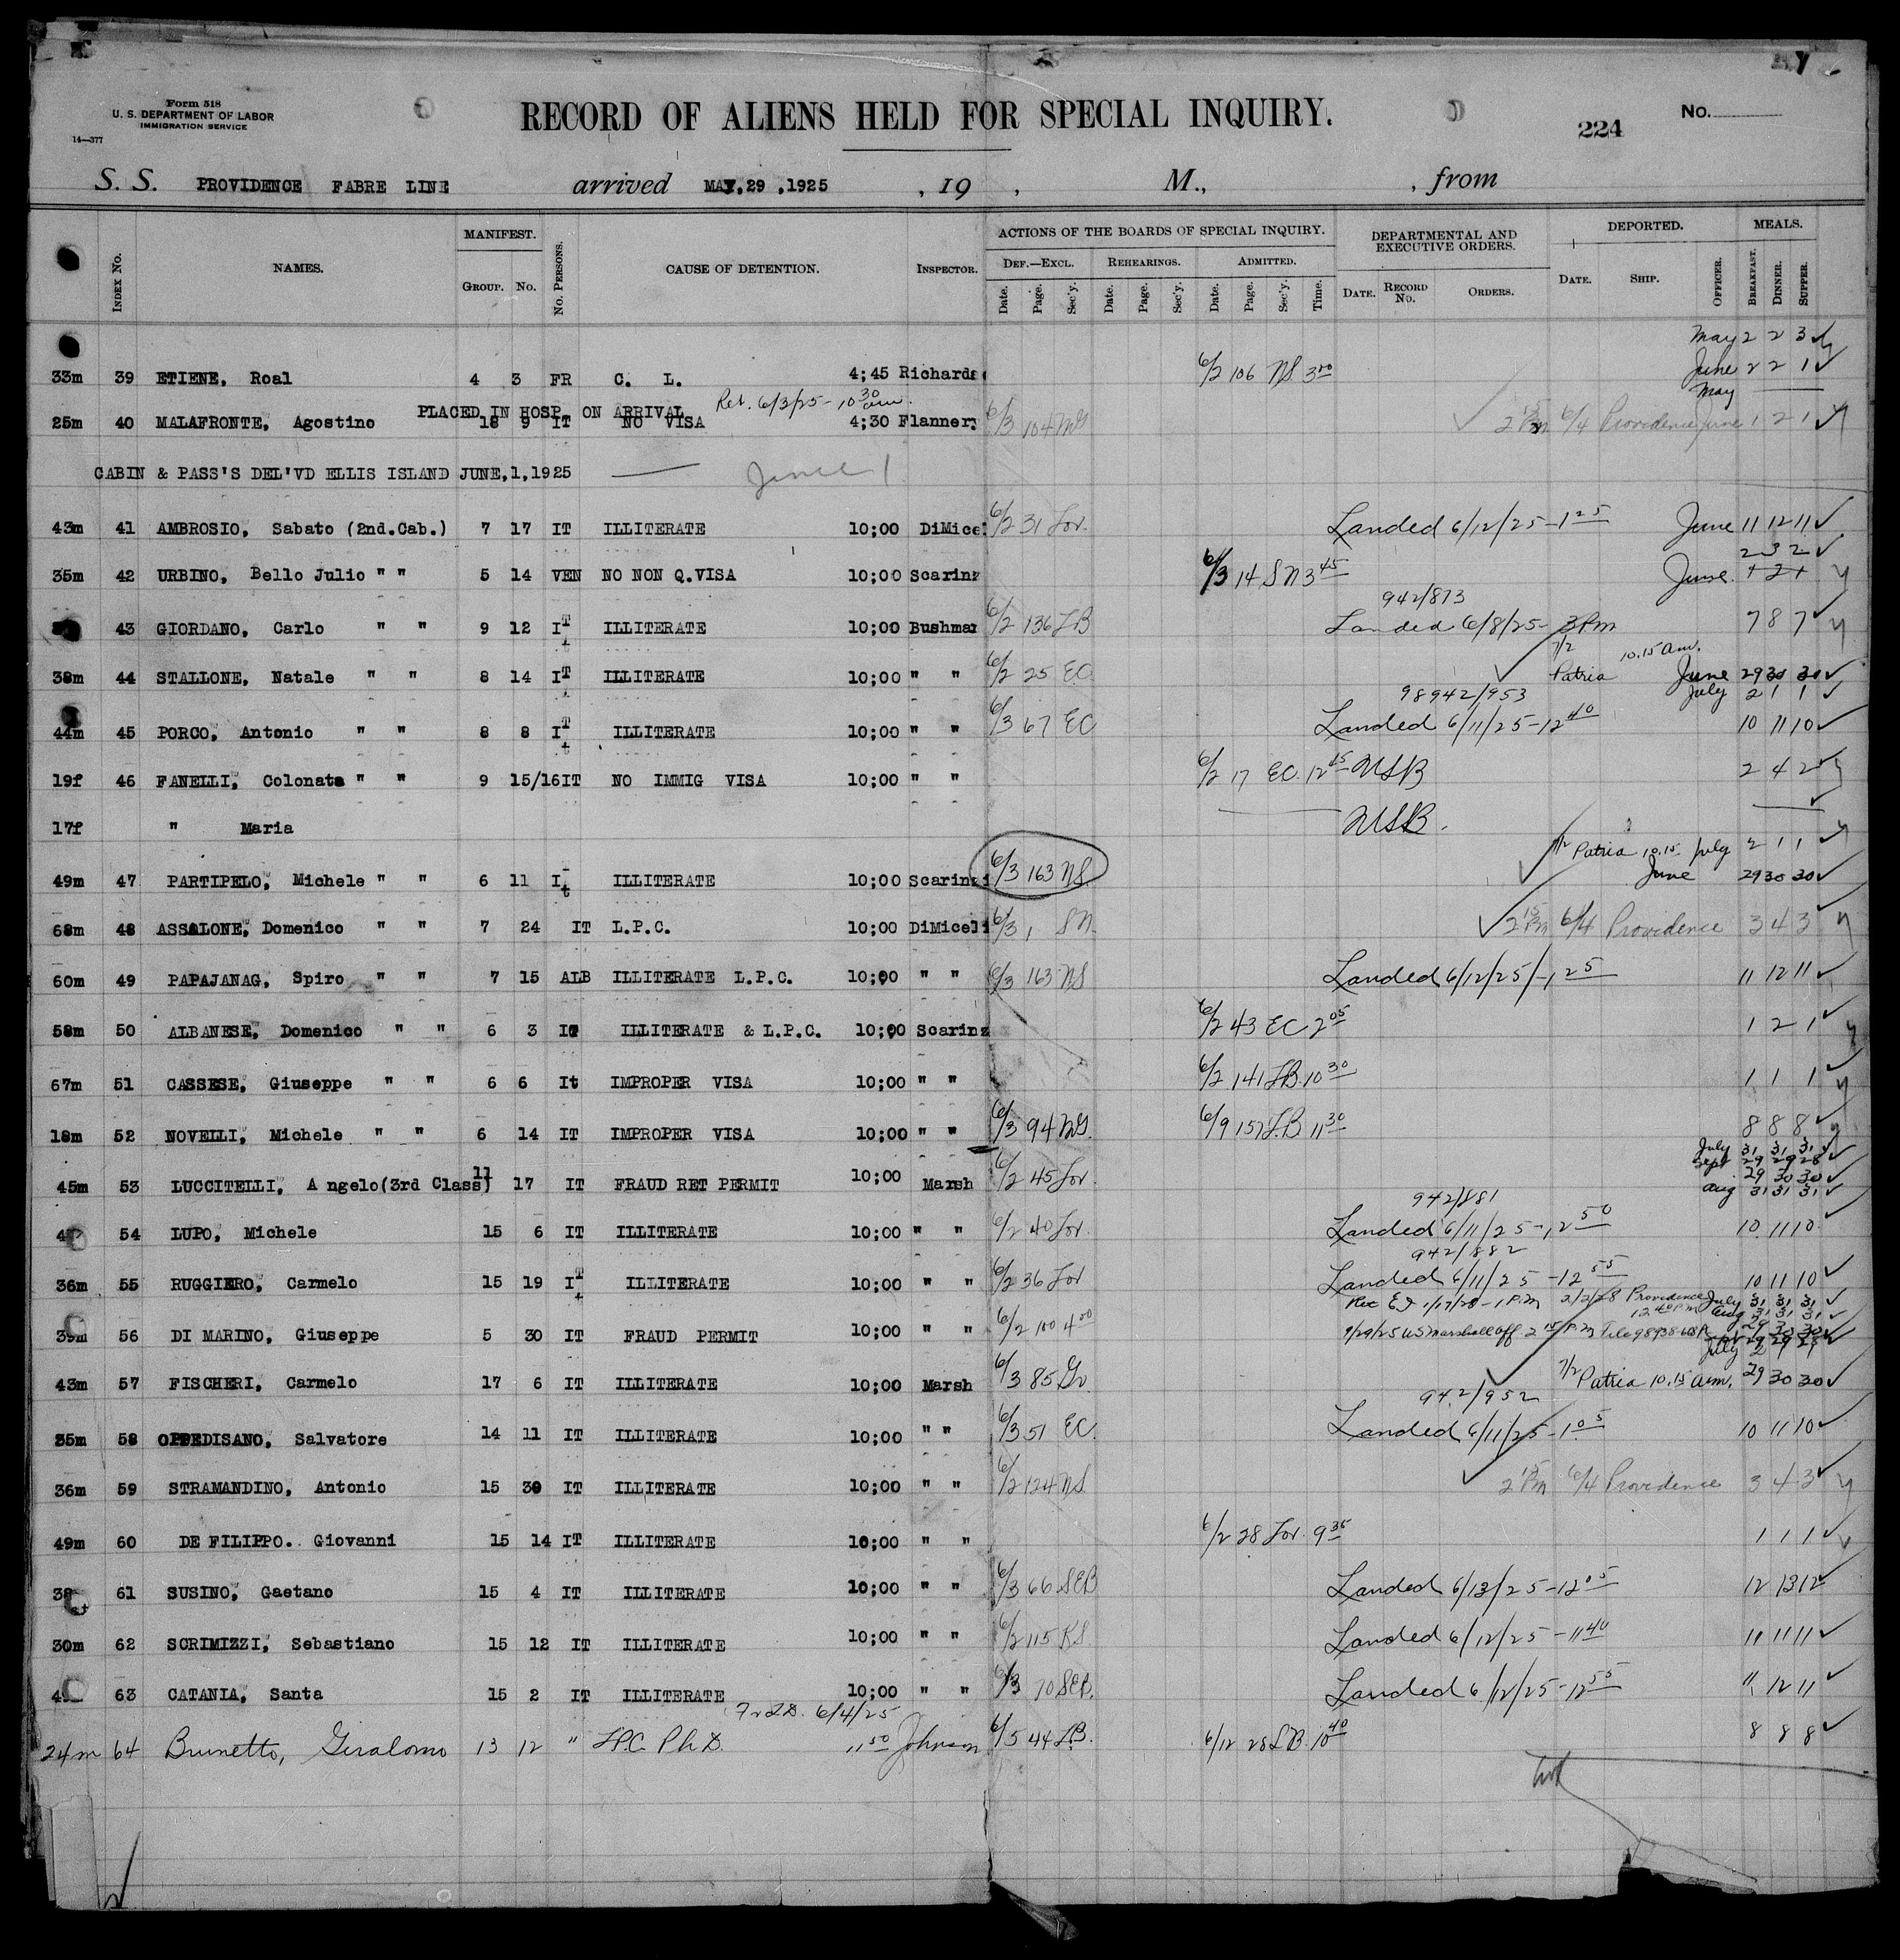 Form 518
U. S. DEPARTMENT OF LABOR
IMMIGRATION SERVICE
14—377
RECORD OF ALIENS HELD FOR SPECIAL INQUIRY.
224
No.
S. S. PROVIDENCE FABRE LINE arrived MAY,29 ,1925 , 19 , M., , from
INDEX No. NAMES. MANIFEST. GROUP. No. No. PERSONS. CAUSE OF DETENTION. INSPECTOR. ACTIONS OF THE BOARDS OF SPECIAL INQUIRY. DEF.—EXCL. Date. Page. Sec'y. REHEARINGS. Date. Page. Sec'y. ADMITTED. Date. Page. Sec'y. Time. DEPARTMENTAL AND EXECUTIVE ORDERS. DATE. RECORD No. ORDERS. DEPORTED. DATE. SHIP. OFFICER. MEALS. BREAKFAST. DINNER. SUPPER.
May 2 2 3
33m 39 ETIENE, Roal 4 3 FR C. L. 4;45 Richards 6/2 106 NS 3 00 June 2 2 1
May
PLACED IN HOSP. ON ARRIVAL Ret. 6/3/25 - 10 30 am.
25m 40 MALAFRONTE, Agostino 18 9 IT NO VISA 4;30 Flannery 6/3 104 MG 2 15 PM 6/4 Providence June 1 2 1
CABIN & PASS'S DEL'VD ELLIS ISLAND JUNE,1,1925 June 1
43m 41 AMBROSIO, Sabato (2nd.Cab.) 7 17 IT ILLITERATE 10;00 DiMicel 6/2 31 Lov. Landed 6/12/25 - 1 25 June 11 12 11
2 3 2
35m 42 URBINO, Bello Julio " " 5 14 VEN NO NON Q.VISA 10;00 Scarinz 6/3 14 SN 3 45 June 1 2 1
942/873
43 GIORDANO, Carlo " " 9 12 IT ILLITERATE 10;00 Bushman 6/2 136 LB Landed 6/8/25 - 3 Pm 7 8 7
7/2 10.15 am.
38m 44 STALLONE, Natale " " 8 14 IT ILLITERATE 10;00 " " 6/2 25 EC Patria June 29 30 30
98942/953 July 2 1 1
44m 45 PORCO, Antonio " " 8 8 IT ILLITERATE 10;00 " " 6/3 67 EC Landed 6/11/25 - 12 40 10 11 10
19f 46 FANELLI, Colonata " " 9 15/16 IT NO IMMIG VISA 10;00 " " 6/2 17 EC. 12 45 USB 2 4 2
17f " Maria USB.
7/2 Patria 10.15 July 2 1 1
49m 47 PARTIPELO, Michele " " 6 11 It ILLITERATE 10;00 Scarinzi 6/3 163 NS. June 29 30 30
68m 48 ASSALONE, Domenico " " 7 24 IT L.P.C. 10;00 DiMiceli 6/3 1 SN. 2 15 PM 6/4 Providence 3 4 3
60m 49 PAPAJANAG, Spiro " " 7 15 ALB ILLITERATE L.P.C. 10;00 " " 6/3 163 NS Landed 6/12/25 - 1 25 11 12 11
58m 50 ALBANESE, Domenico " " 6 3 IT ILLITERATE & L.P.C. 10;00 Scarinz 6/2 43 EC 2 05 1 2 1
67m 51 CASSESE, Giuseppe " " 6 6 It IMPROPER VISA 10;00 " " 6/2 141 LB. 10 30 1 1 1
18m 52 NOVELLI, Michele " " 6 14 IT IMPROPER VISA 10;00 " " 6/3 94 MG. 6/9 157 LB 11 30 8 8 8
July 31 31 31
Sept 29 29 28
29 30 30
45m 53 LUCCITELLI, Angelo(3rd Class) 11 17 IT FRAUD RET PERMIT 10;00 Marsh 6/2 45 Lov Aug 31 31 31
942/881
54 LUPO, Michele 15 6 IT ILLITERATE 10;00 " " 6/2 40 Lov. Landed 6/11/25 - 12 50 10 11 10
942/882
36m 55 RUGGIERO, Carmelo 15 19 IT ILLITERATE 10;00 " " 6/2 36 Lov Landed 6/11/25 - 12 55 10 11 10
Rec EI 1/17/28 - 1 P.M 2/2/28 Providence July 31 31 31
12 40 PM Aug 31 31 31
39m 56 DI MARINO, Giuseppe 5 30 IT FRAUD PERMIT 10;00 " " 6/2 100 4 00 9/29/25 US Marshall off. 2 15 P.M
July
43m 57 FISCHERI, Carmelo 17 6 IT ILLITERATE 10;00 Marsh 6/3 85 Gr 7/2 Patria 10.15 am. 29 30 30
942/952
35m 58 OPPEDISANO, Salvatore 14 11 IT ILLITERATE 10;00 " " 6/3 51 EC. Landed 6/11/25 - 1 05 10 11 10
36m 59 STRAMANDINO, Antonio 15 30 IT ILLITERATE 10;00 " " 6/2 124 NS 2 15 PM 6/4 Providence 3 4 3
49m 60 DE FILIPPO. Giovanni 15 14 IT ILLITERATE 10;00 " " 6/2 28 Lov. 9 35 1 1 1
38 61 SUSINO, Gaetano 15 4 IT ILLITERATE 10;00 " " 6/3 66 SEB Landed 6/13/25 - 12 05 12 13 12
30m 62 SCRIMIZZI, Sebastiano 15 12 IT ILLITERATE 10;00 " " 6/2 115 KS. Landed 6/12/25 - 11 40 11 11 11
63 CATANIA, Santa 15 2 IT ILLITERATE 10;00 " " 6/3 70 SEB. Landed 6/12/25 - 12 55 11 12 11
6/4/25
24m 64 Brunetto, Giralomo 13 12 " L.P.C. Ph.D. 11 50 Johnson 6/5 44 LB. 6/12 28 LB. 10 40 8 8 8